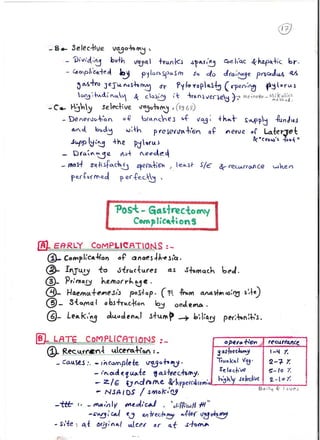 12
- B- Selective vagotomy.
- Dividing both vagal trunks sparing Coeliac & hepatic br.
- Complicated by pylorospasm so do drainage procedure as
gastro jejunostomy or Pyloroplasty (opening pylorus
longitudinally & closing it transversely)
- C- Highly selective vagotomy.
- Denervation of branches of vagi that supply fundus
and body with preservation of nerve of Laterjet
supplying the pylorus & "crow's foot"
- Drainage not needed
- most satisfactory operation, least S/E & recurrence when
performed perfectly.
Post - Gastrectomy
Complications
A. EARLY COMPLICATIONS :-
① - Complication of anaesthesia.
② - Injury to structures as stomach bed.
③ - Primary hemorrhage.
④ - Haematemesis postop. ( from anastmosing site)
⑤ - Stomal obstruction by oedema.
⑥ - Leaking duodenal stump → biliary peritonitis.
B. LATE COMPLICATIONS :-
① Recurrent ulceration :-
- Causes :. - incomplete vagotomy.
- inadequate gastrectomy.
- Z/E syndrome
- NSAIDS / smoking
- ttt :. - mainly medical .
- surgical
- site : at original ulcer or at stoma
operation | recurrence
gastrectomy | 1-4 %
Trunkal Vag. | 2-7 %
Selective | 5-10 %
highly selective | 2-10 %